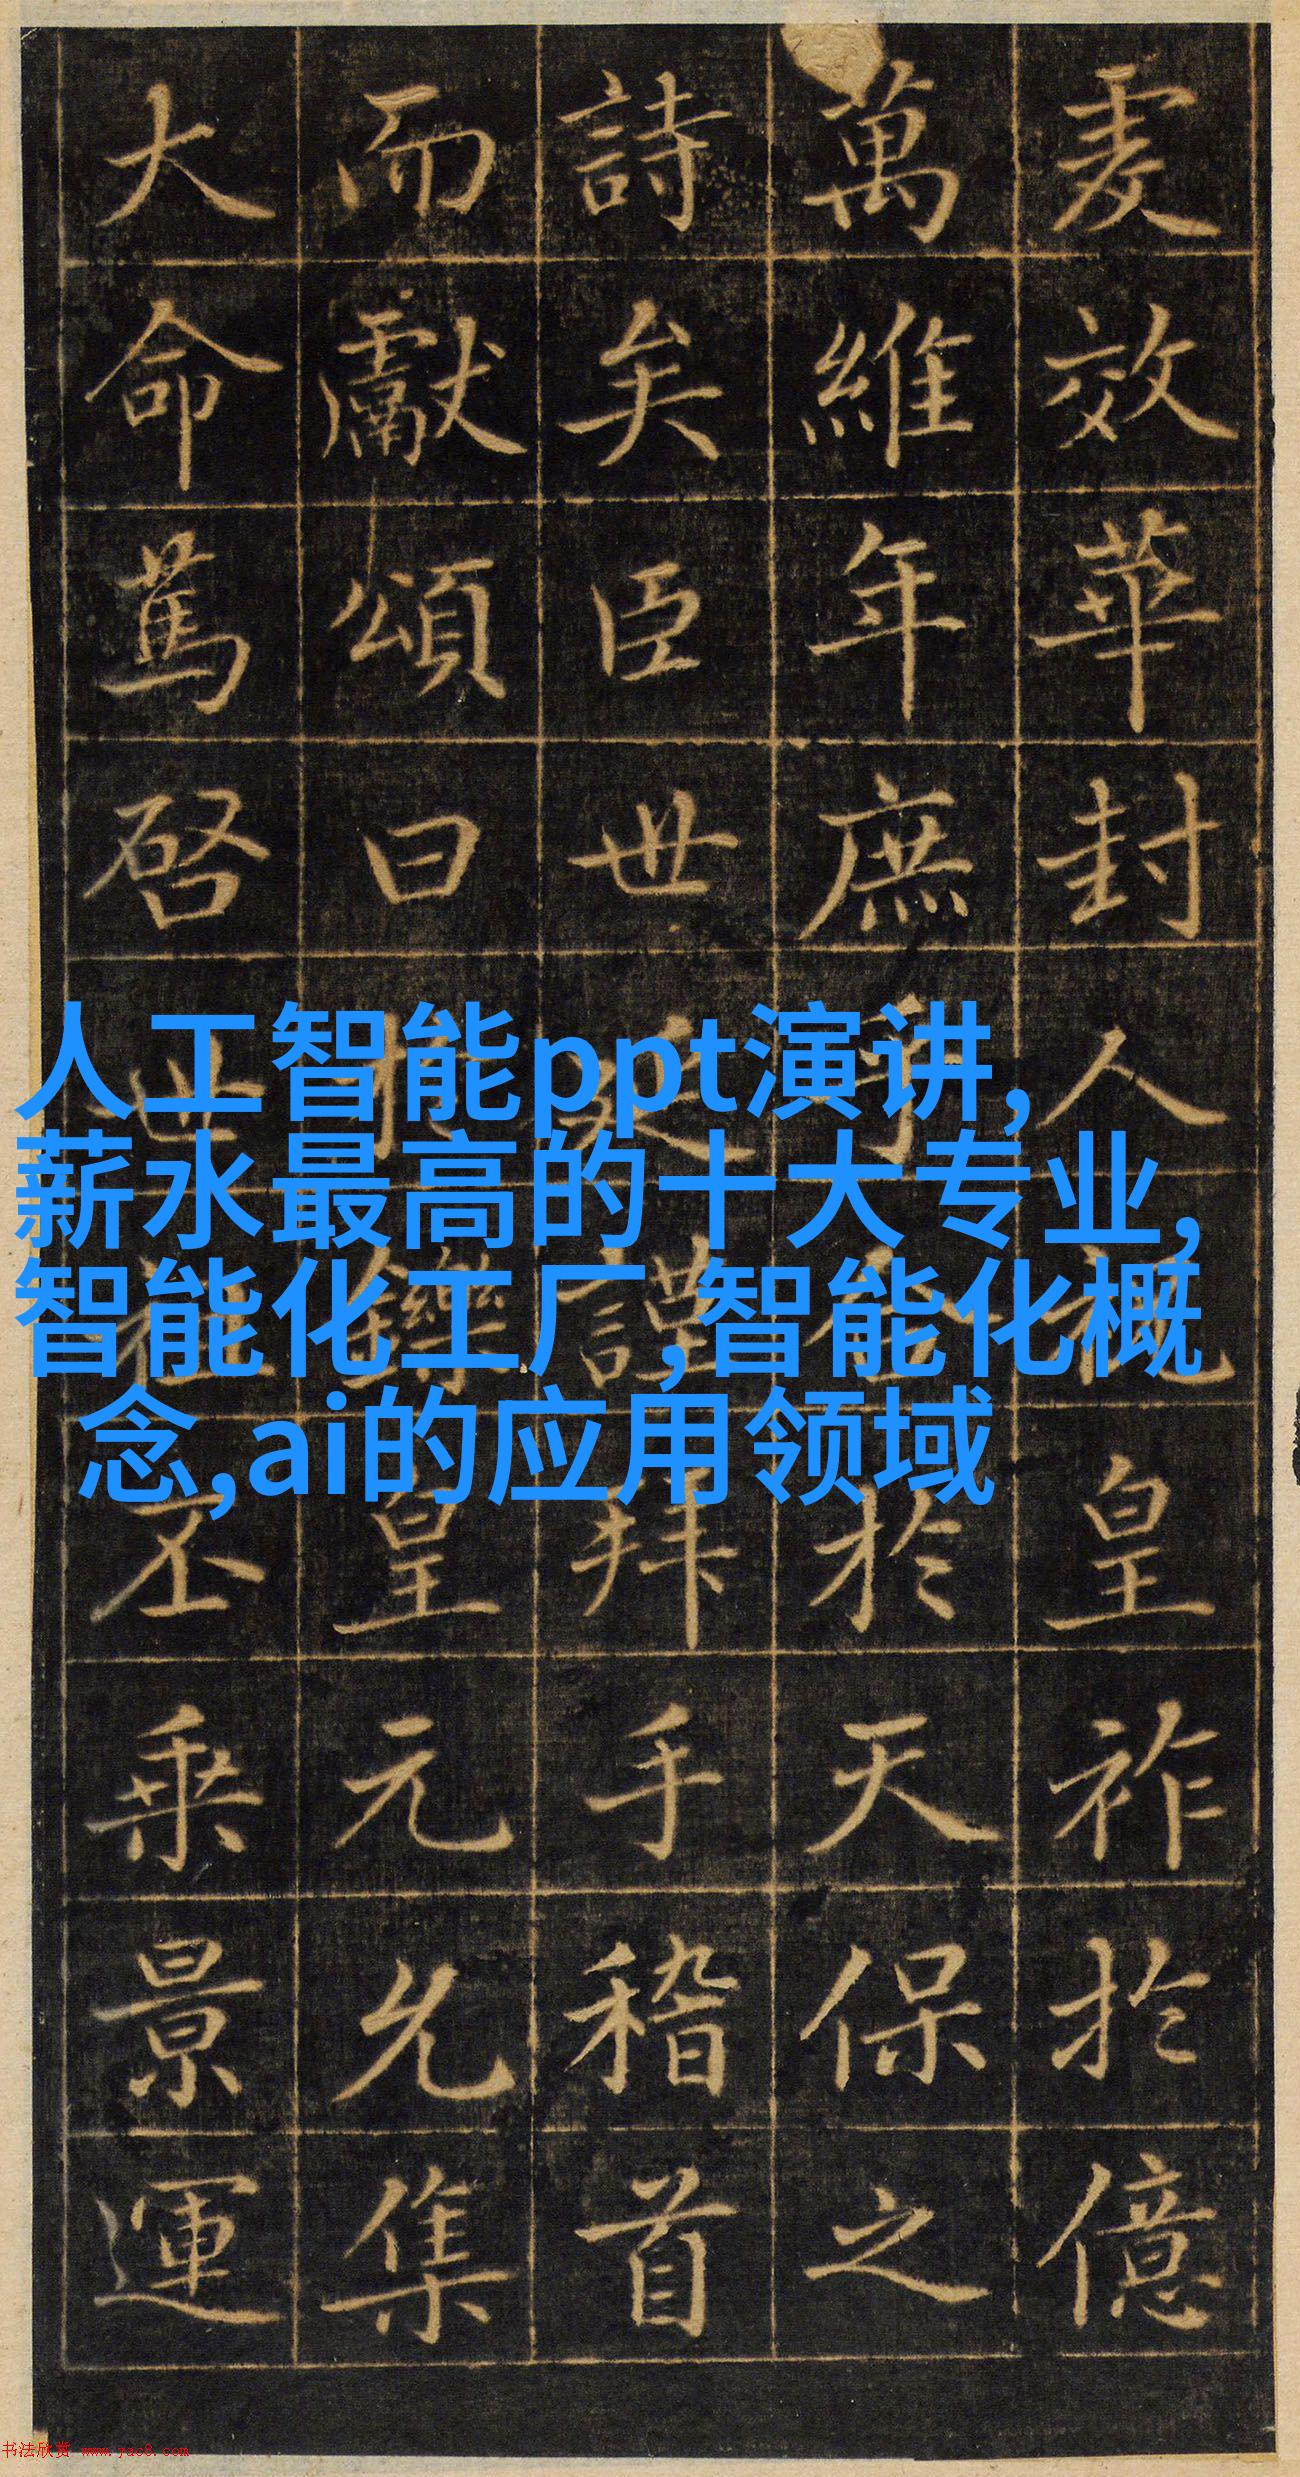 爰效華封人祝皇祚於億
萬維年庶乎於天保之
詩矣臣世延謹拜手稽首
而獻頌曰於鑠皇元允集
大命篤啓世祖丕乘景運
人工智能ppt演讲,
薪水最高的十大专业,
智能化工厂,智能化概
念,ai的应用领域
书法欣赏 www.yac8.com